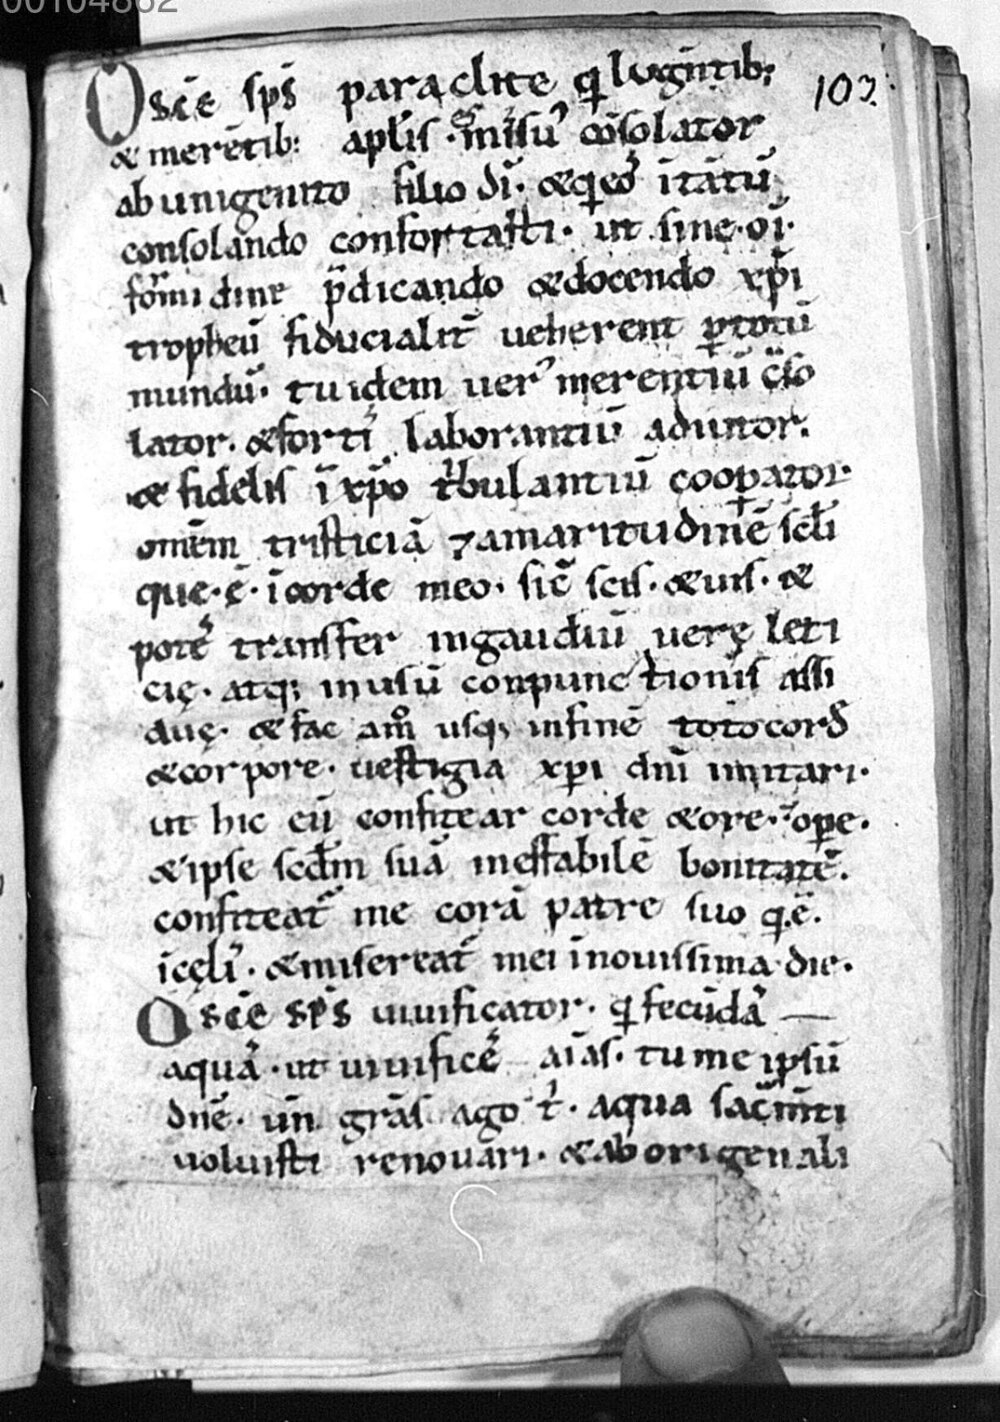 00104862
O sc̄e sp̄s paraclite q̇ lugn̄tib;
103.
& merētib: apl̄is mīsuꝰ cōsolator
ab unigenito filio dī· & q̇ eoꝰ ītātū
consolando confortasti· ut sine· oī·
fōrmidine p̄dicando & docendo xp̄i
tropheū fiducialit̄ ueherent ꝑ totū
mundū· tu idem uerꝰ merentiū c̄so
lator· & fortiˢ laborantiū adiutor·
& fidelis ī xp̄o tˈbulantiū cooꝑator
omēm tristiciā ⁊ amaritudinē scl̄i
que· ē· ī corde meo· sic̄ scis· & uis· &
poteˢ transfer in gaudiū uerę leti
cię· atq; in usū conpunctionis assi
duę· & fac amō usq; in finē toto cord̄
& corpore· uestigia xp̄i dn̄i imitari·
ut hic eū confitear corde & ore· ⁊ oꝑe·
& ipse scd̄m suā ineffabilē bonitatē·
confiteat̄ me corā patre suo q· ē·
ī cęliˢ· & misereat̄ mei ī nouissima die·
O sc̄e sp̄s uiuificator· q̇ fecūdaˢ
aquaˢ· ut uiuificeˢ aīas· tu me ipsū
dn̄e· un̄ grās ago tˈ· aqua sac̄m̄ti
uoluisti renouari· & ab origenali